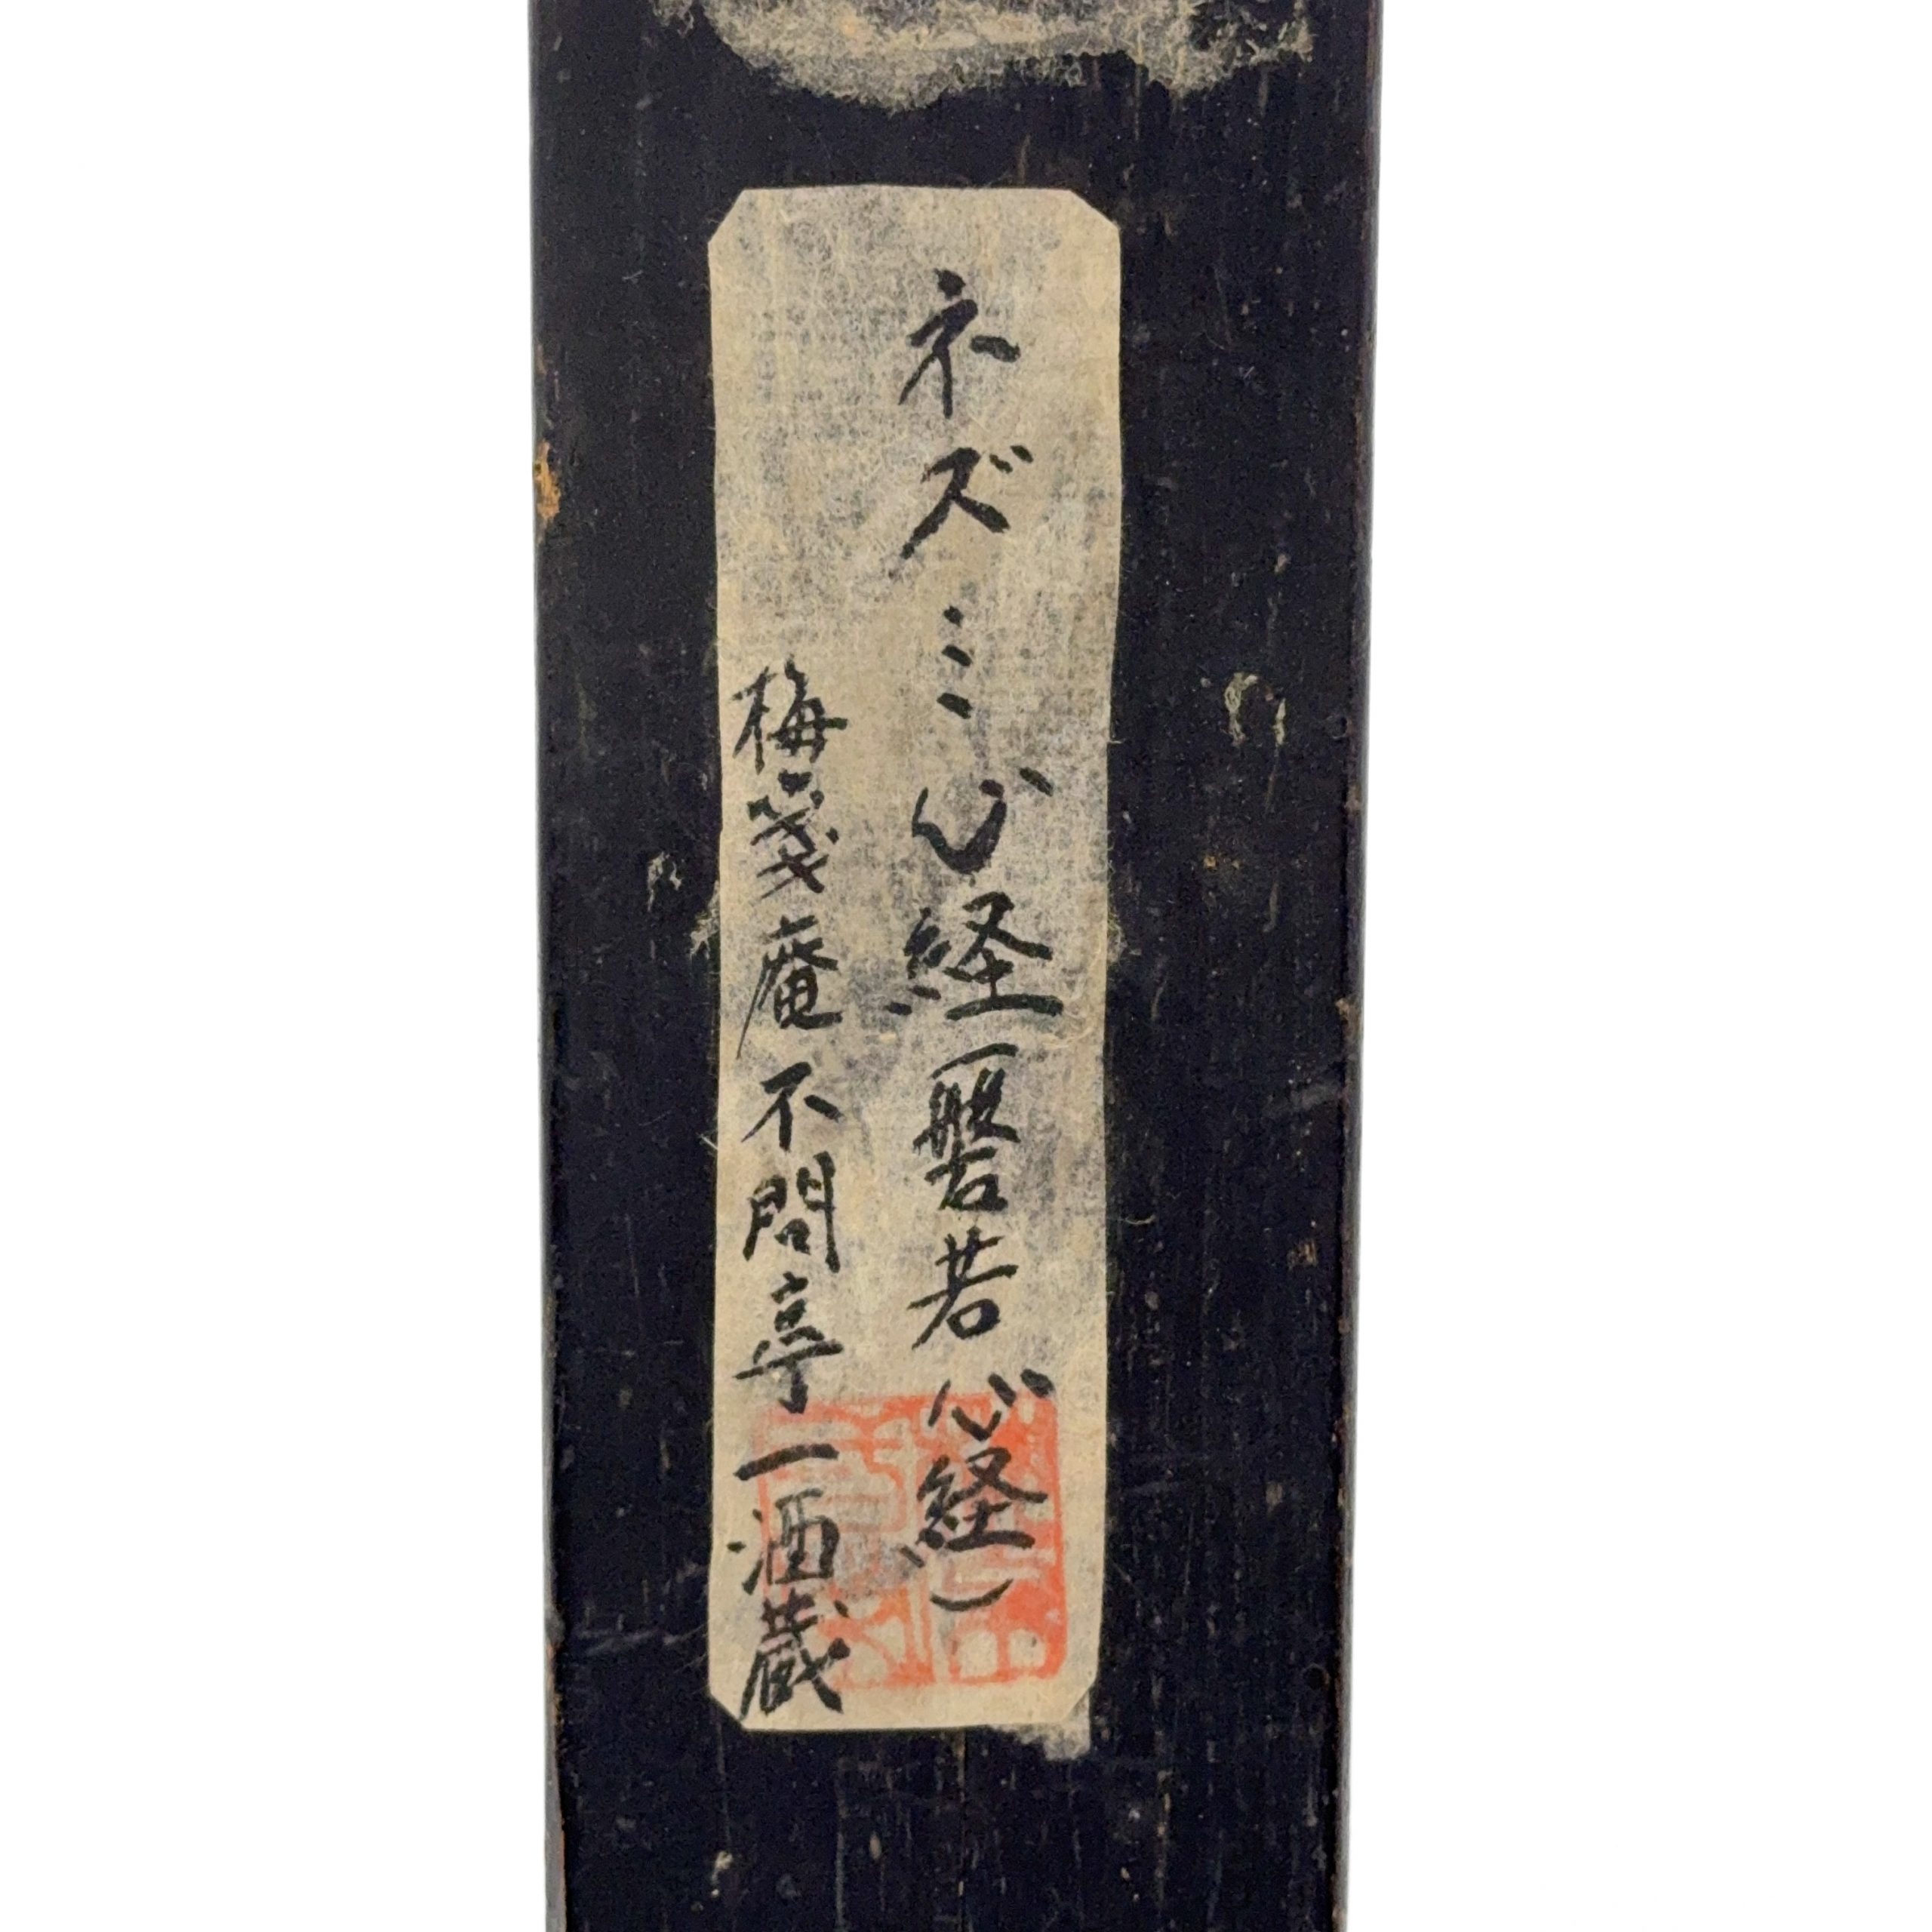 ネズミ心経（磐若心経）
梅箋庵不問亭一酒蔵